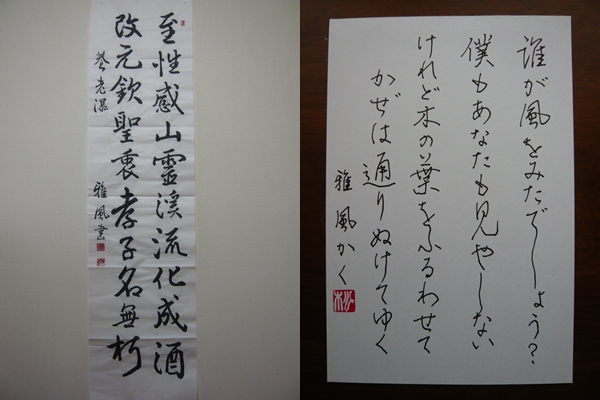 至性感山霊渓流化成酒
改元欽聖衷孝子名無朽
養老瀑
雅風書
誰が風をみたでしょう?
僕もあなたも見やしない
けれど木の葉をふるわせて
かぜは通りぬけてゆく
雅風かく